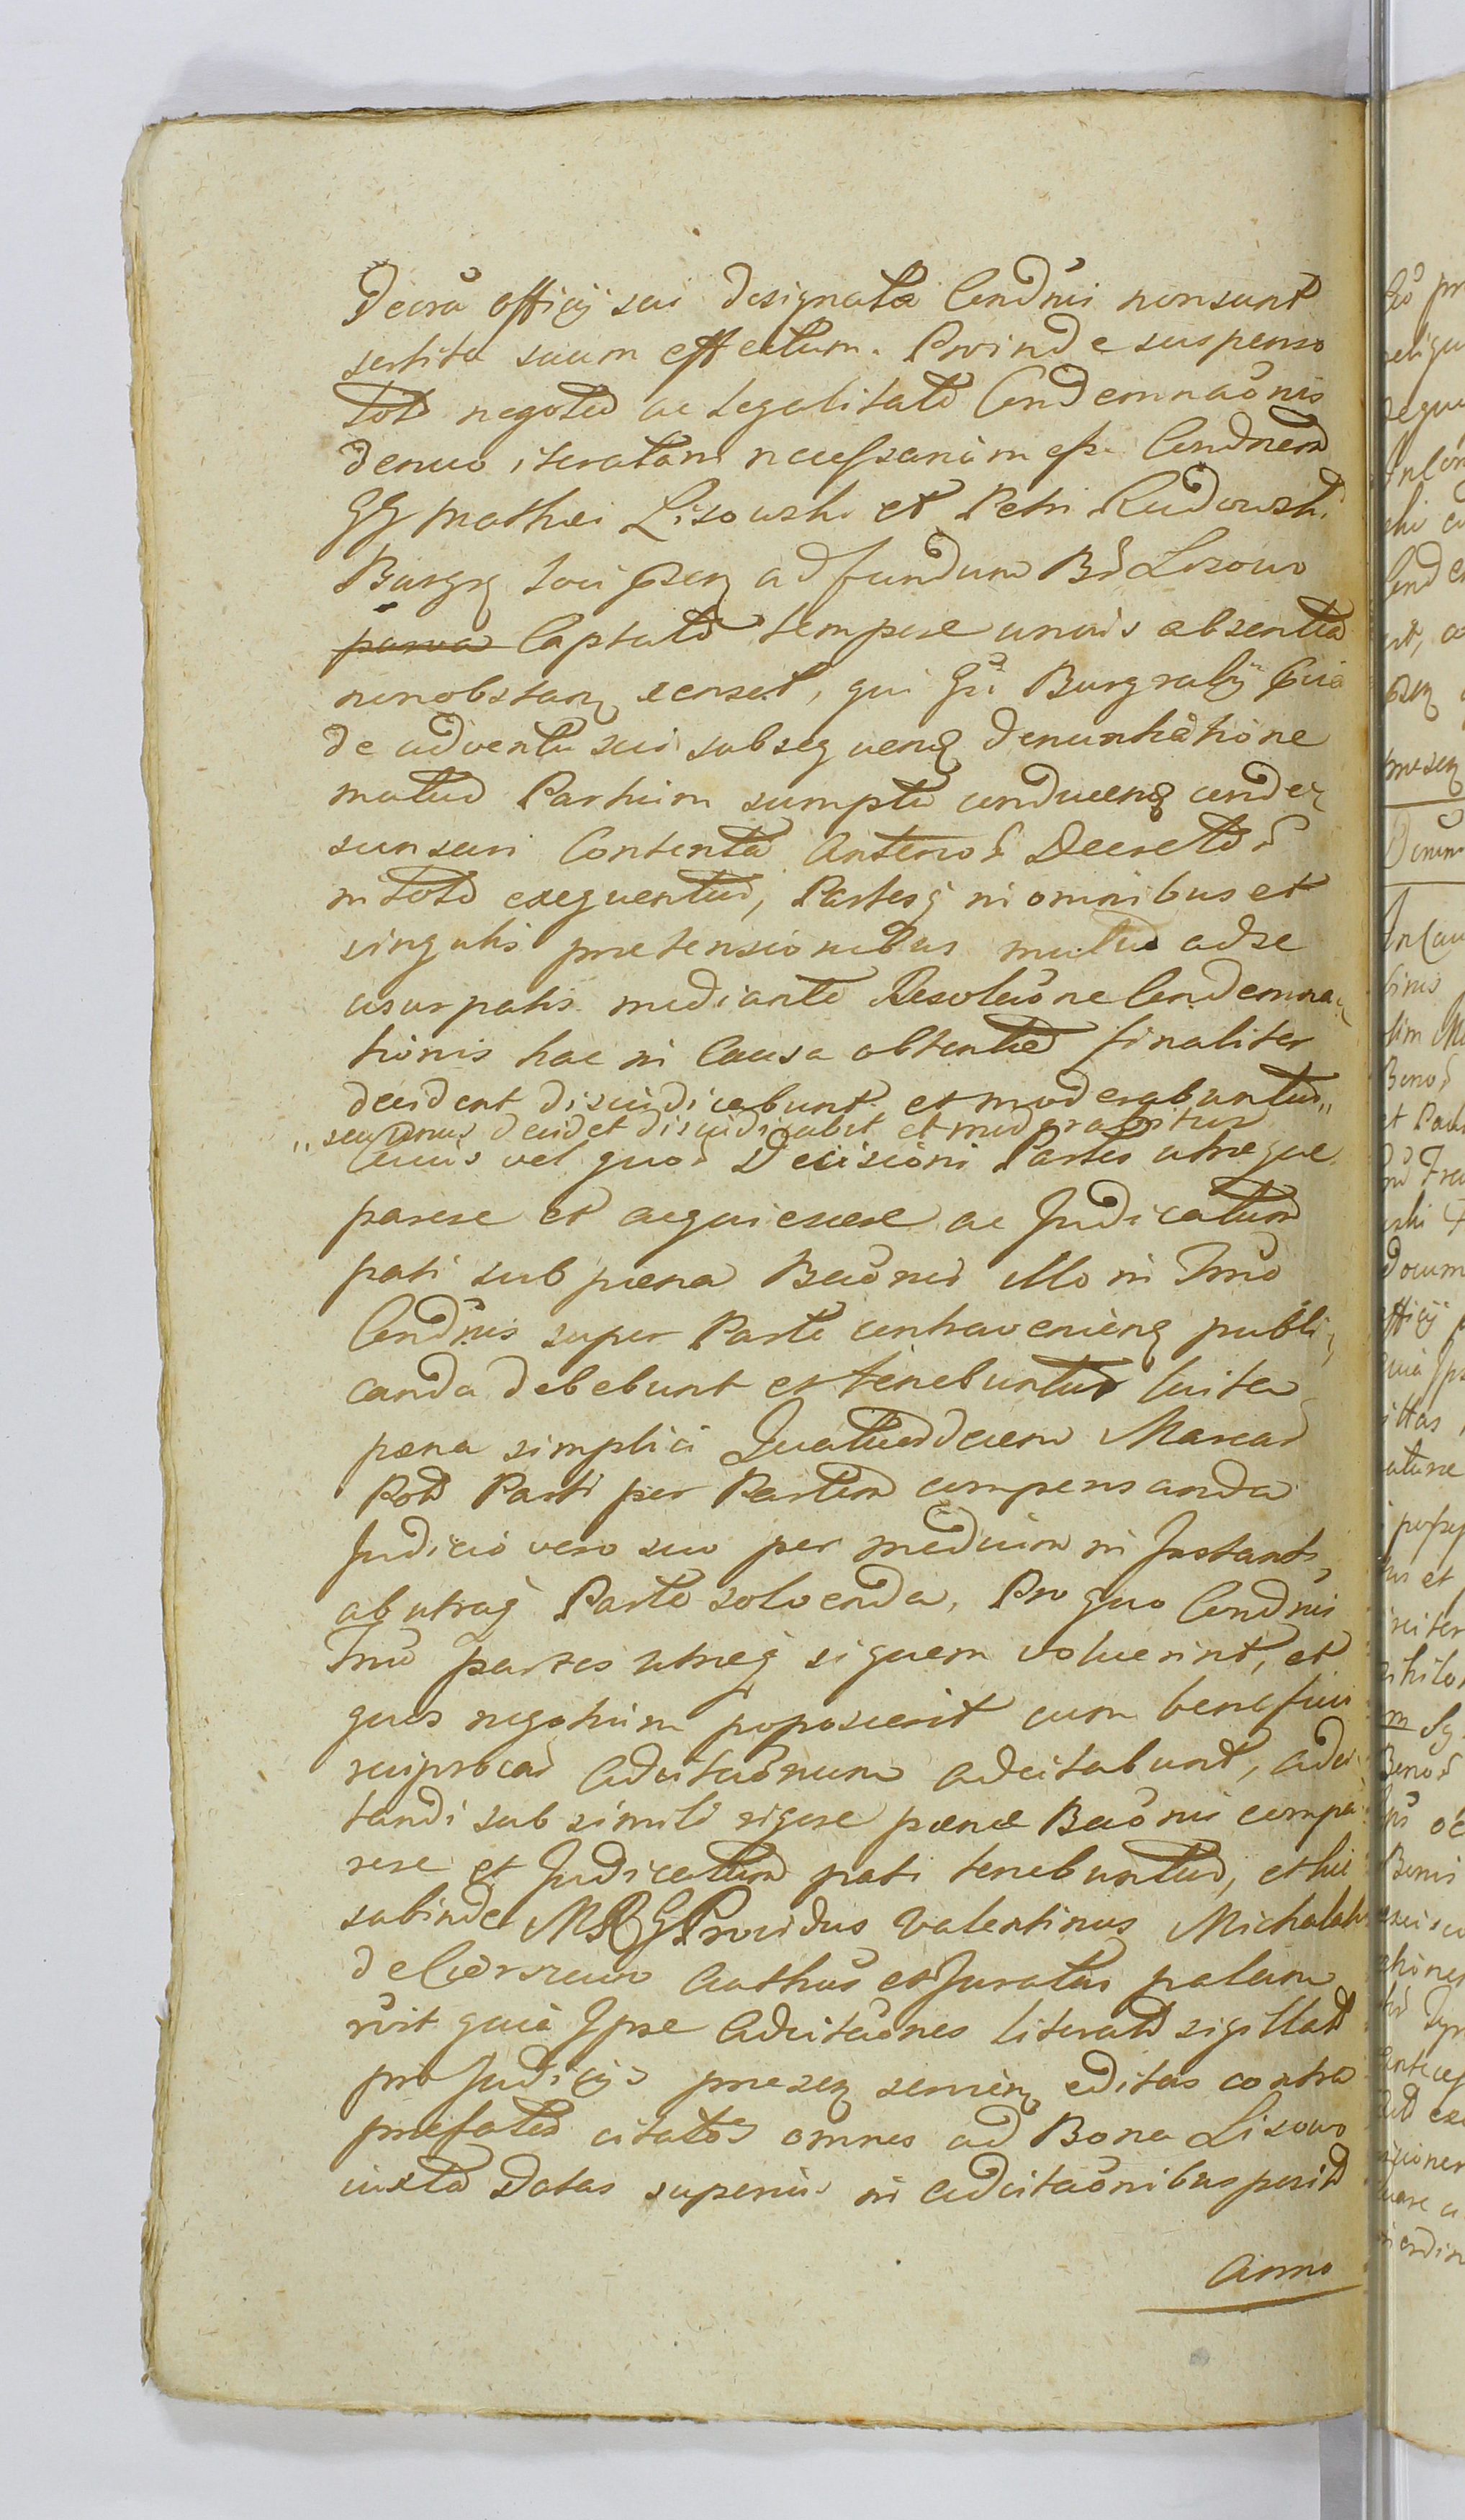 Decra officÿ sui designata Condnis non sunt
sortita suum effectum. Proinde suspenso
toto negotio ac legalitate Condemnaonis
denuo iteratam necessarium esse Condnem
GG Mathei Lisowski et Petri Rudowski
Burgg loci psen ad fundum Br Lisowo
parva Captato tempore unius absentia
nonobstan censet, qui Gsi Burgrabÿ
de adventu sui subsequen denuntiatione
mutuo Partium sumptu conducend conde
sun suri Contenta Anterior Decretor
in toto exequentur, Partesq in omnibus et
singulis praetensionibus mutuo ad se
usurpatis mediante Resoluone Condemna
tionis hac in Causa obtentae finaliter
decident disiudicabunt et moderabuntur
seu unus decidet disiudicabit et moderabitur
Cuius vel quor Decisioni Partes utraeque
parere et acquiescere ac Judicatum
pati sub paena Baonis illo in Tmno
Condnis super Parte contravenien publi
canda debebunt et tenebuntur luita
paena simplici Quatuordecem Marcar
Polo Parti per Partem compensanda
Judicio vero suo per medium in Instanti
ab utraq Parte solvenda, Pro quo Condnis
Tmno partes utraeq siquem voluerint, et
quos negotium poposcerit cum beneficio
reciprocar Adcitaonum adcitabunt, adci
tandi sub simili rigore paenae Baonis compa
rere et Judicatum pati tenebuntur, et hic
subinde MRG Providus Valentinus Michalak
de authus et Juratus palam
rvit quia Ipse Adcitaones literales sigillat
pro Judicÿs praesen servien editas contra
praefatos citatos omnes ad Bona Lisowo
iuxta Datas superius in adcitaonibus posit
Anno